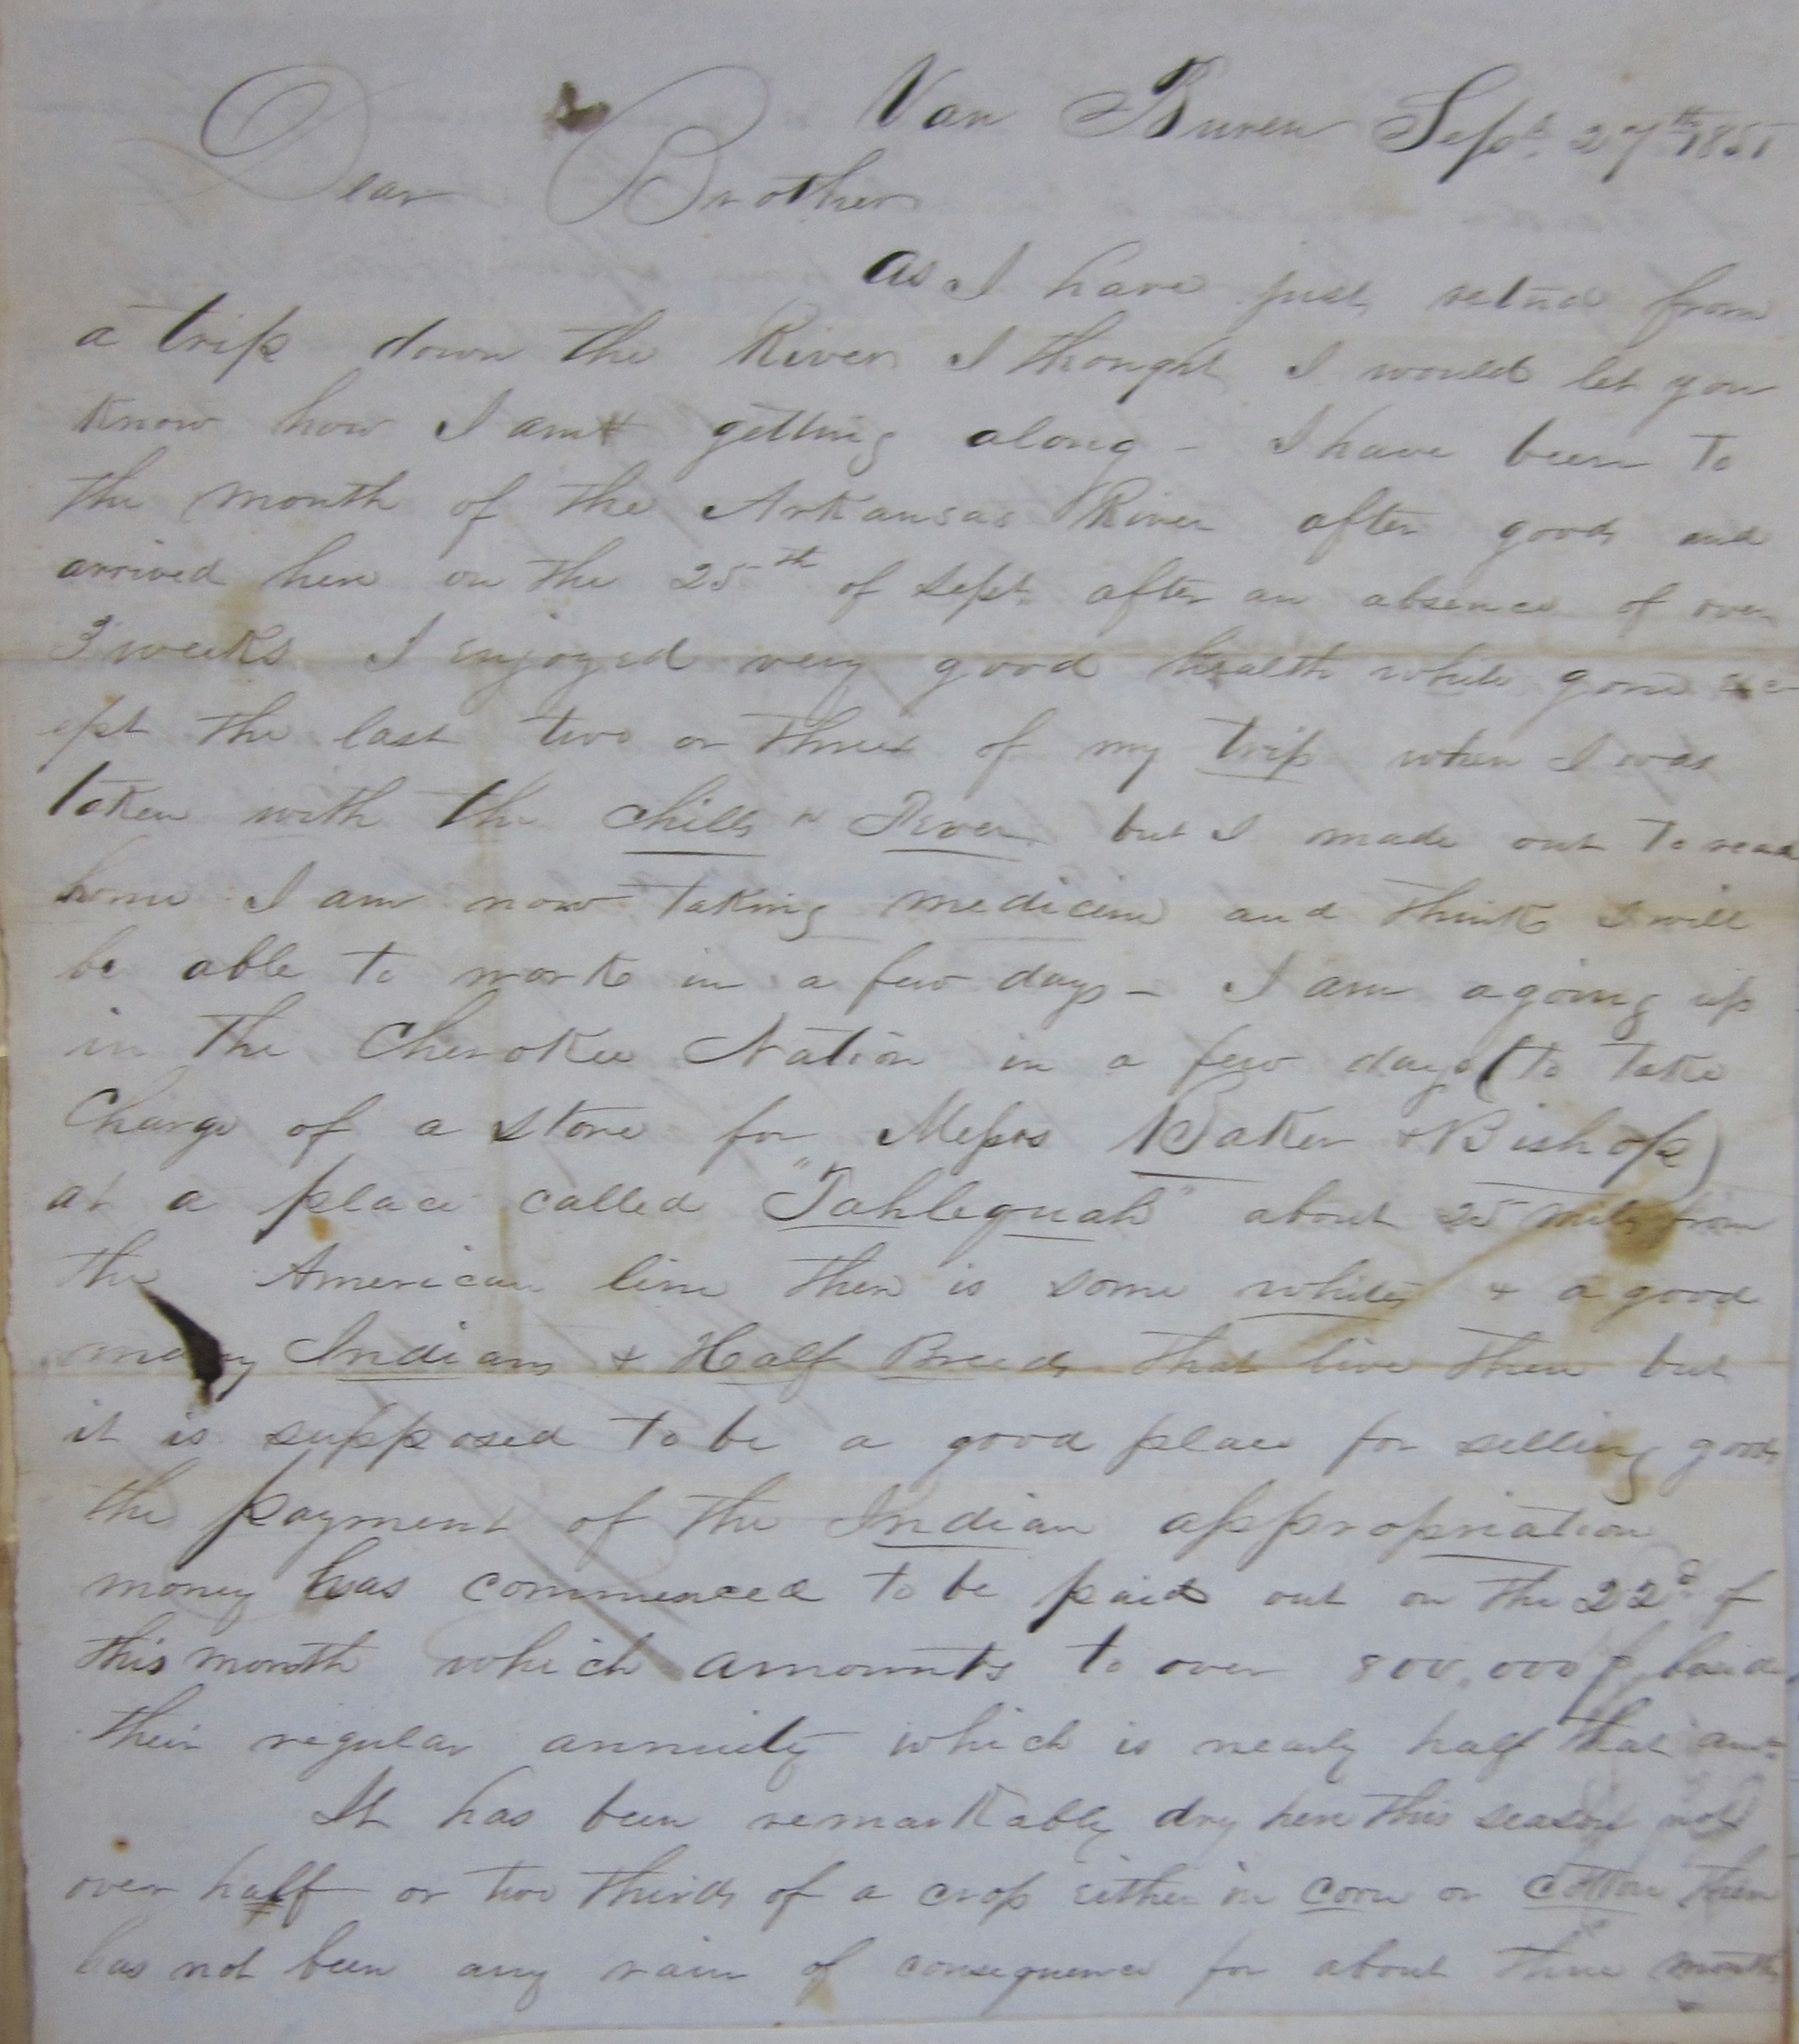 Van Buren Sept. 27th 1851
Dear Brother
As I have just retnd from
a trip down the River I thought I would let you
know how I am getting along - I have been to
the mouth of the Arkansas River after goods and
arrived here on the 25th of Sept. after an absence of over
3 weeks I enjoyed very good health while gone exc-
ept the last two or three of my trip when I was
taken with the chills " Fever but I made out to reach
home I am now taking medicine and think I will
be able to work in a few days - I am agoing up
in the Cherokee Nation in a few days (to take
Charge of a store for Messrs Baker & Bishop)
at a place called "Tahlequah" about 25 miles from
the American line there is some whites & a good
many Indians & Half Breeds that live there but
it is supposed to be a good place for selling goods
the payment of the Indian appropriation
money has commenced to be paid out on the 22d of
this month which amounts to over 800,000 $ besides
their regular annuity which is nearly half that amt
It has been remarkably dry here this season not
over half or two thirds of a crop either in corn or cotton there
has not been any rain of consequence for about three months